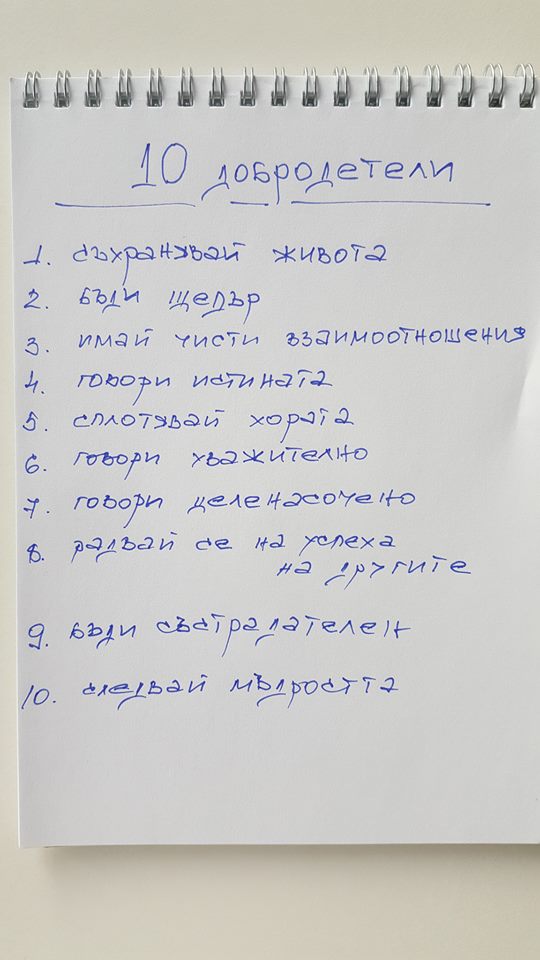 10 добродетели
1. съхранявай живота
2. бъди щедър
3. имай чисти взаимоотношения
4. говори истината
5. сплотявай хората
6. говори уважително
7. говори целенасочено
8. радвай се на успеха
на другите
9. бъди състрадателен
10. следвай мъдростта